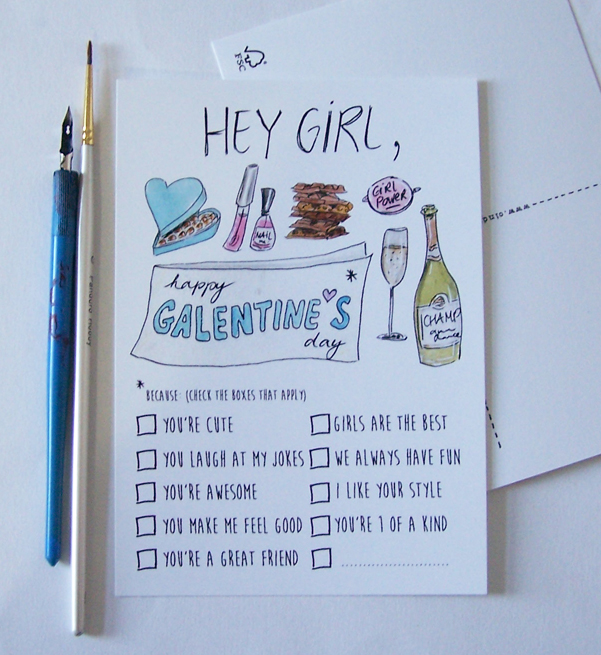 FSC
HEY GIRL,
GIRL
POWER
NAIL
happy
*
GALENTINE'S
day
CHAMP
* BECAUSE (CHECK THE BOXES THAT APPLY)
YOU'RE CUTE
GIRLS ARE THE BEST
YOU LAUGH AT MY JOKES
WE ALWAYS HAVE FUN
YOU'RE AWESOME
I LIKE YOUR STYLE
YOU MAKE ME FEEL GOOD
YOU'RE 1 OF A KIND
YOU'RE A GREAT FRIEND